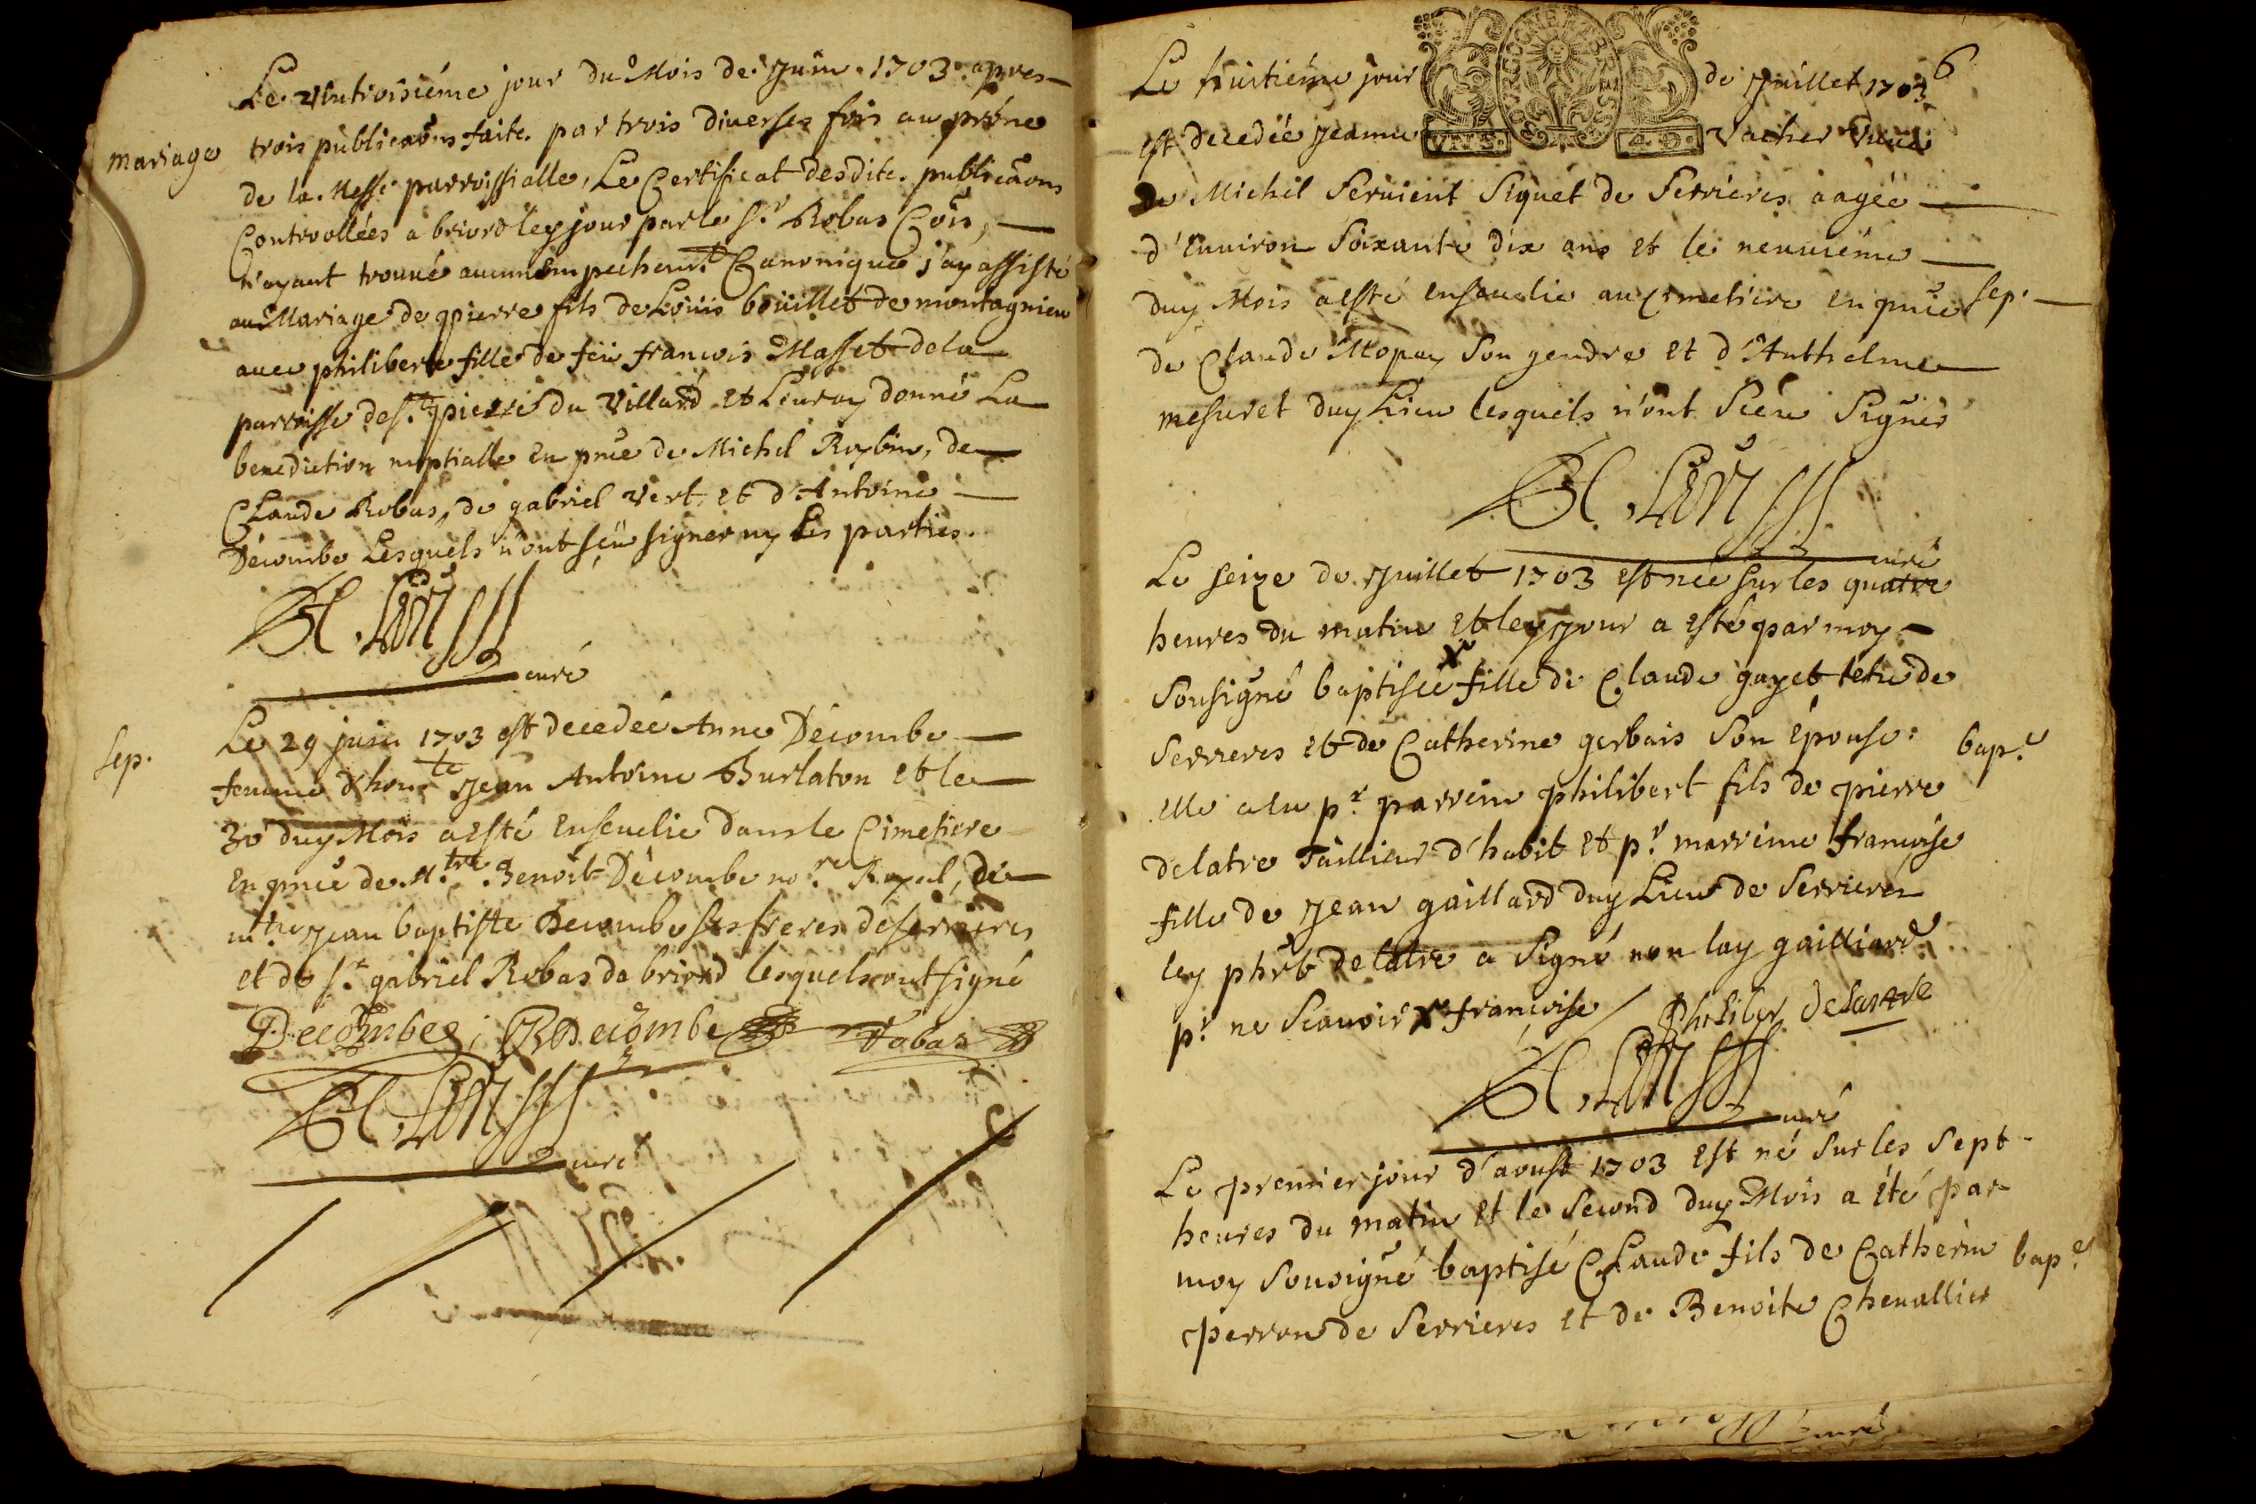 Le vintroisiéme jour du Mois de Juin 1703 apres
mariage
trois publicaõns faite. par trois diverses fois au prône
de la Messe parroissialle, Le Certificat desdite. publicaõns
Controllées a briord ley jour par le s.r Robas Coĩs,
n'ayant trouué aucun Empechem.t Canonique j'ay assisté
au Mariage de pierre fils de Loüis boüillet de montagnieu
auec philiberte fille de feü francois Masset de la
parroisse de s.t pierre du Villard et Leur ay donné La
benediction nuptialle en pñce de Michel Roybin, de
Claude Robas, de gabriel Vert, et d'Antoine
Décombe Lesquels n'ont sçeu signer ny les parties.
curé
sep.
Le 29 juin 1703 est decedeé Anne Décombe
femme d'hon.te Jean Antoine Burlaton et le
30 duy Mois a esté Enseuelie dans le Cimetiere
En pñce de M.tre Benoit Décombe no.re Royal, de
m.tre Jean baptiste Decombe ses freres de serrieres
et de s.r gabriel Robas de briord lesquels ont signé
Decombes; JB Decombe Robas
curé
6
Le huitiéme jour de Juillet 1703
est decedée Jeanne Vacher
de Michel Seruient Piquet de Serrieres aagée
d'Enuiron soixante dix ans et le neuuiéme
duy Mois a esté enseuelie au Cimetiere en pñce
sep.
de Claude Mopay son gendre et d'Anthelme
mesuret duy Lieu lesquels n'ont sceu signer
curé
Le seize de Juillet 1703 est née sur les quatre
heures du matin et ley Jour a esté par moy
sousigné baptisée x fille de Claude gayet tétu de
Serrieres et de Catherine gerbais son épouse:
bap.e
elle a eu p.r parrein philibert fils de pierre
delatre Tallieur d'habit et p.r marreine françoise
fille de Jean gaillard duy Lieu de Serrieres
ley phb̃t delatre a signé non lay gailliard
p.r ne scauoir x françoise / Philiber delattre
curé
Le premier jour d'aoust 1703 est né sur les sept
heures du matin et le second duy Mois a été par
moy sousigné baptisé Claude fils de Catherin
bap.e
perron de Serrieres et de Benoite Cheuallier
curé